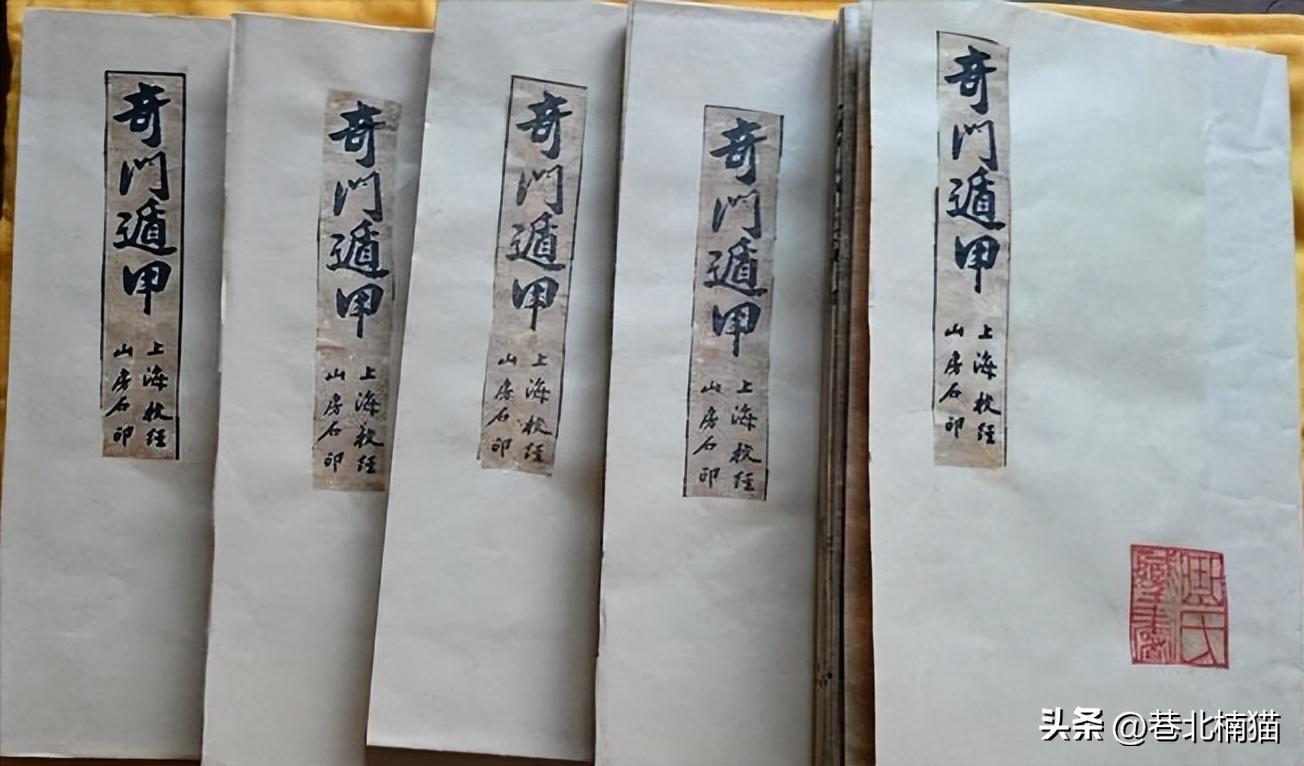 奇門遁甲
上海校經
山房石印
奇門遁甲
上海校經
山房石印
奇門遁甲
上海校經
山房石印
奇門遁甲
上海校經
山房石印
奇門遁甲
上海校經
山房石印
氏
藏書
头条 @巷北楠猫